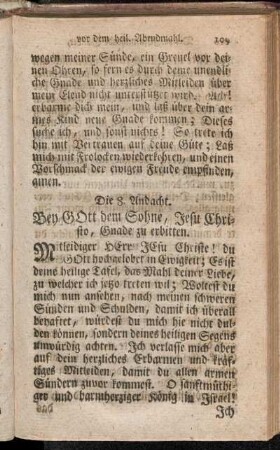 vor dem heil. Abendmahl. 109
wegen meiner Sünde, ein Greuel vor dei-
nen Ohren, so fern es durch deine unendli-
che Gnade und herzliches Mitleiden über
mein Elend nicht unterstützet wird. Ach!
erbarme dich mein, und laß über dein ar-
mes Kind neue Gnade kommen; Dieses
suche ich, und sonst nichts! So trete ich
hin mit Vertrauen auf deine Güte; Laß
mich mit Frolocken wiederkehren, und einen
Vorschmack der ewigen Freude empfinden,
Amen.
Die 3. Andacht.
Bey GOtt dem Sohne, Jesu Chri-
sto, Gnade zu erbitten.
Mitleidiger HErr JEsu Christe! du
GOtt hochgelobet in Ewigkeit; Es ist
deine heilige Tafel, das Mahl deiner Liebe,
zu welcher ich jetzo treten wil; Woltest du
mich nun ansehen, nach meinen schweren
Sünden und Schulden, damit ich überall
behaftet, würdest du mich hie nicht dul-
den können, sondern deines heiligen Segens
unwürdig achten. Ich verlasse mich aber
auf dein herzliches Erbarmen und kräf-
tiges Mitleiden, damit du allen armen
Sündern zuvor kommest. O sanftmüthi-
ger und barmherziger König in Israel!
Ich